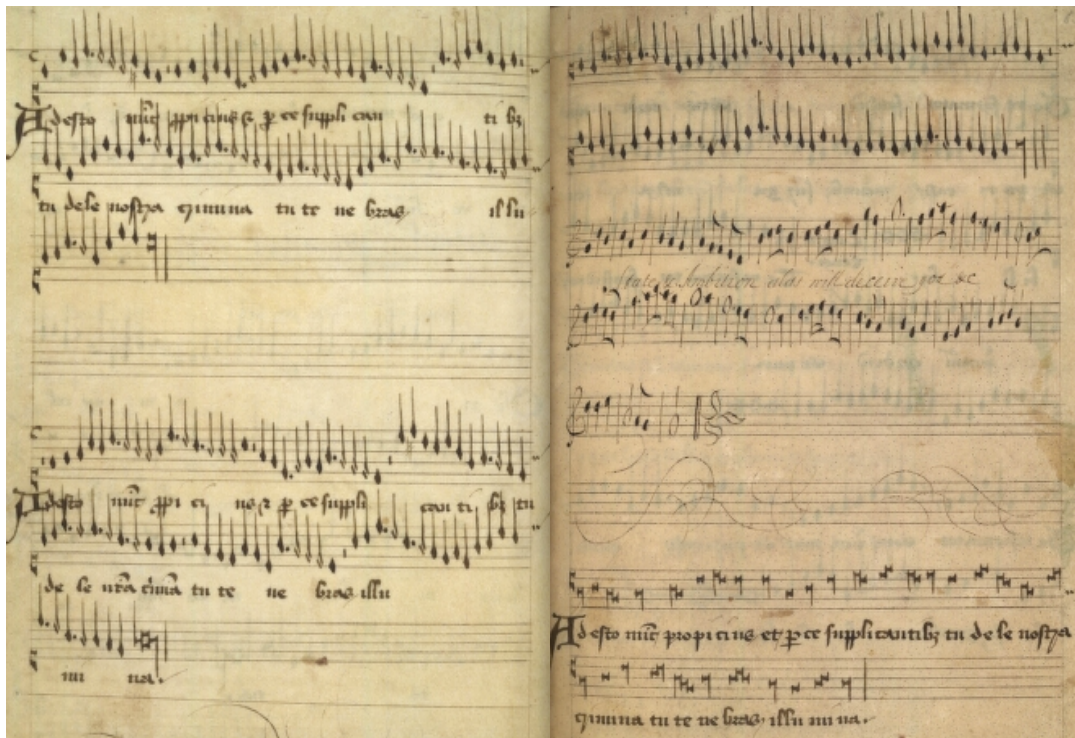 Adesto nūc ppicius & p ce suppli can ti bz
tu dele nostra crimina tu te ne bras illu
Adesto nūc ppi ci us & p ce suppli can ti bz tu
de le nrā crimīa tu te ne bras illu
mi na.
State & Ambition alas will deceive you &c
Adesto nūc propicius et p ce supplicantibz tu de le nostra
crimina tu te ne bras illu mi na.